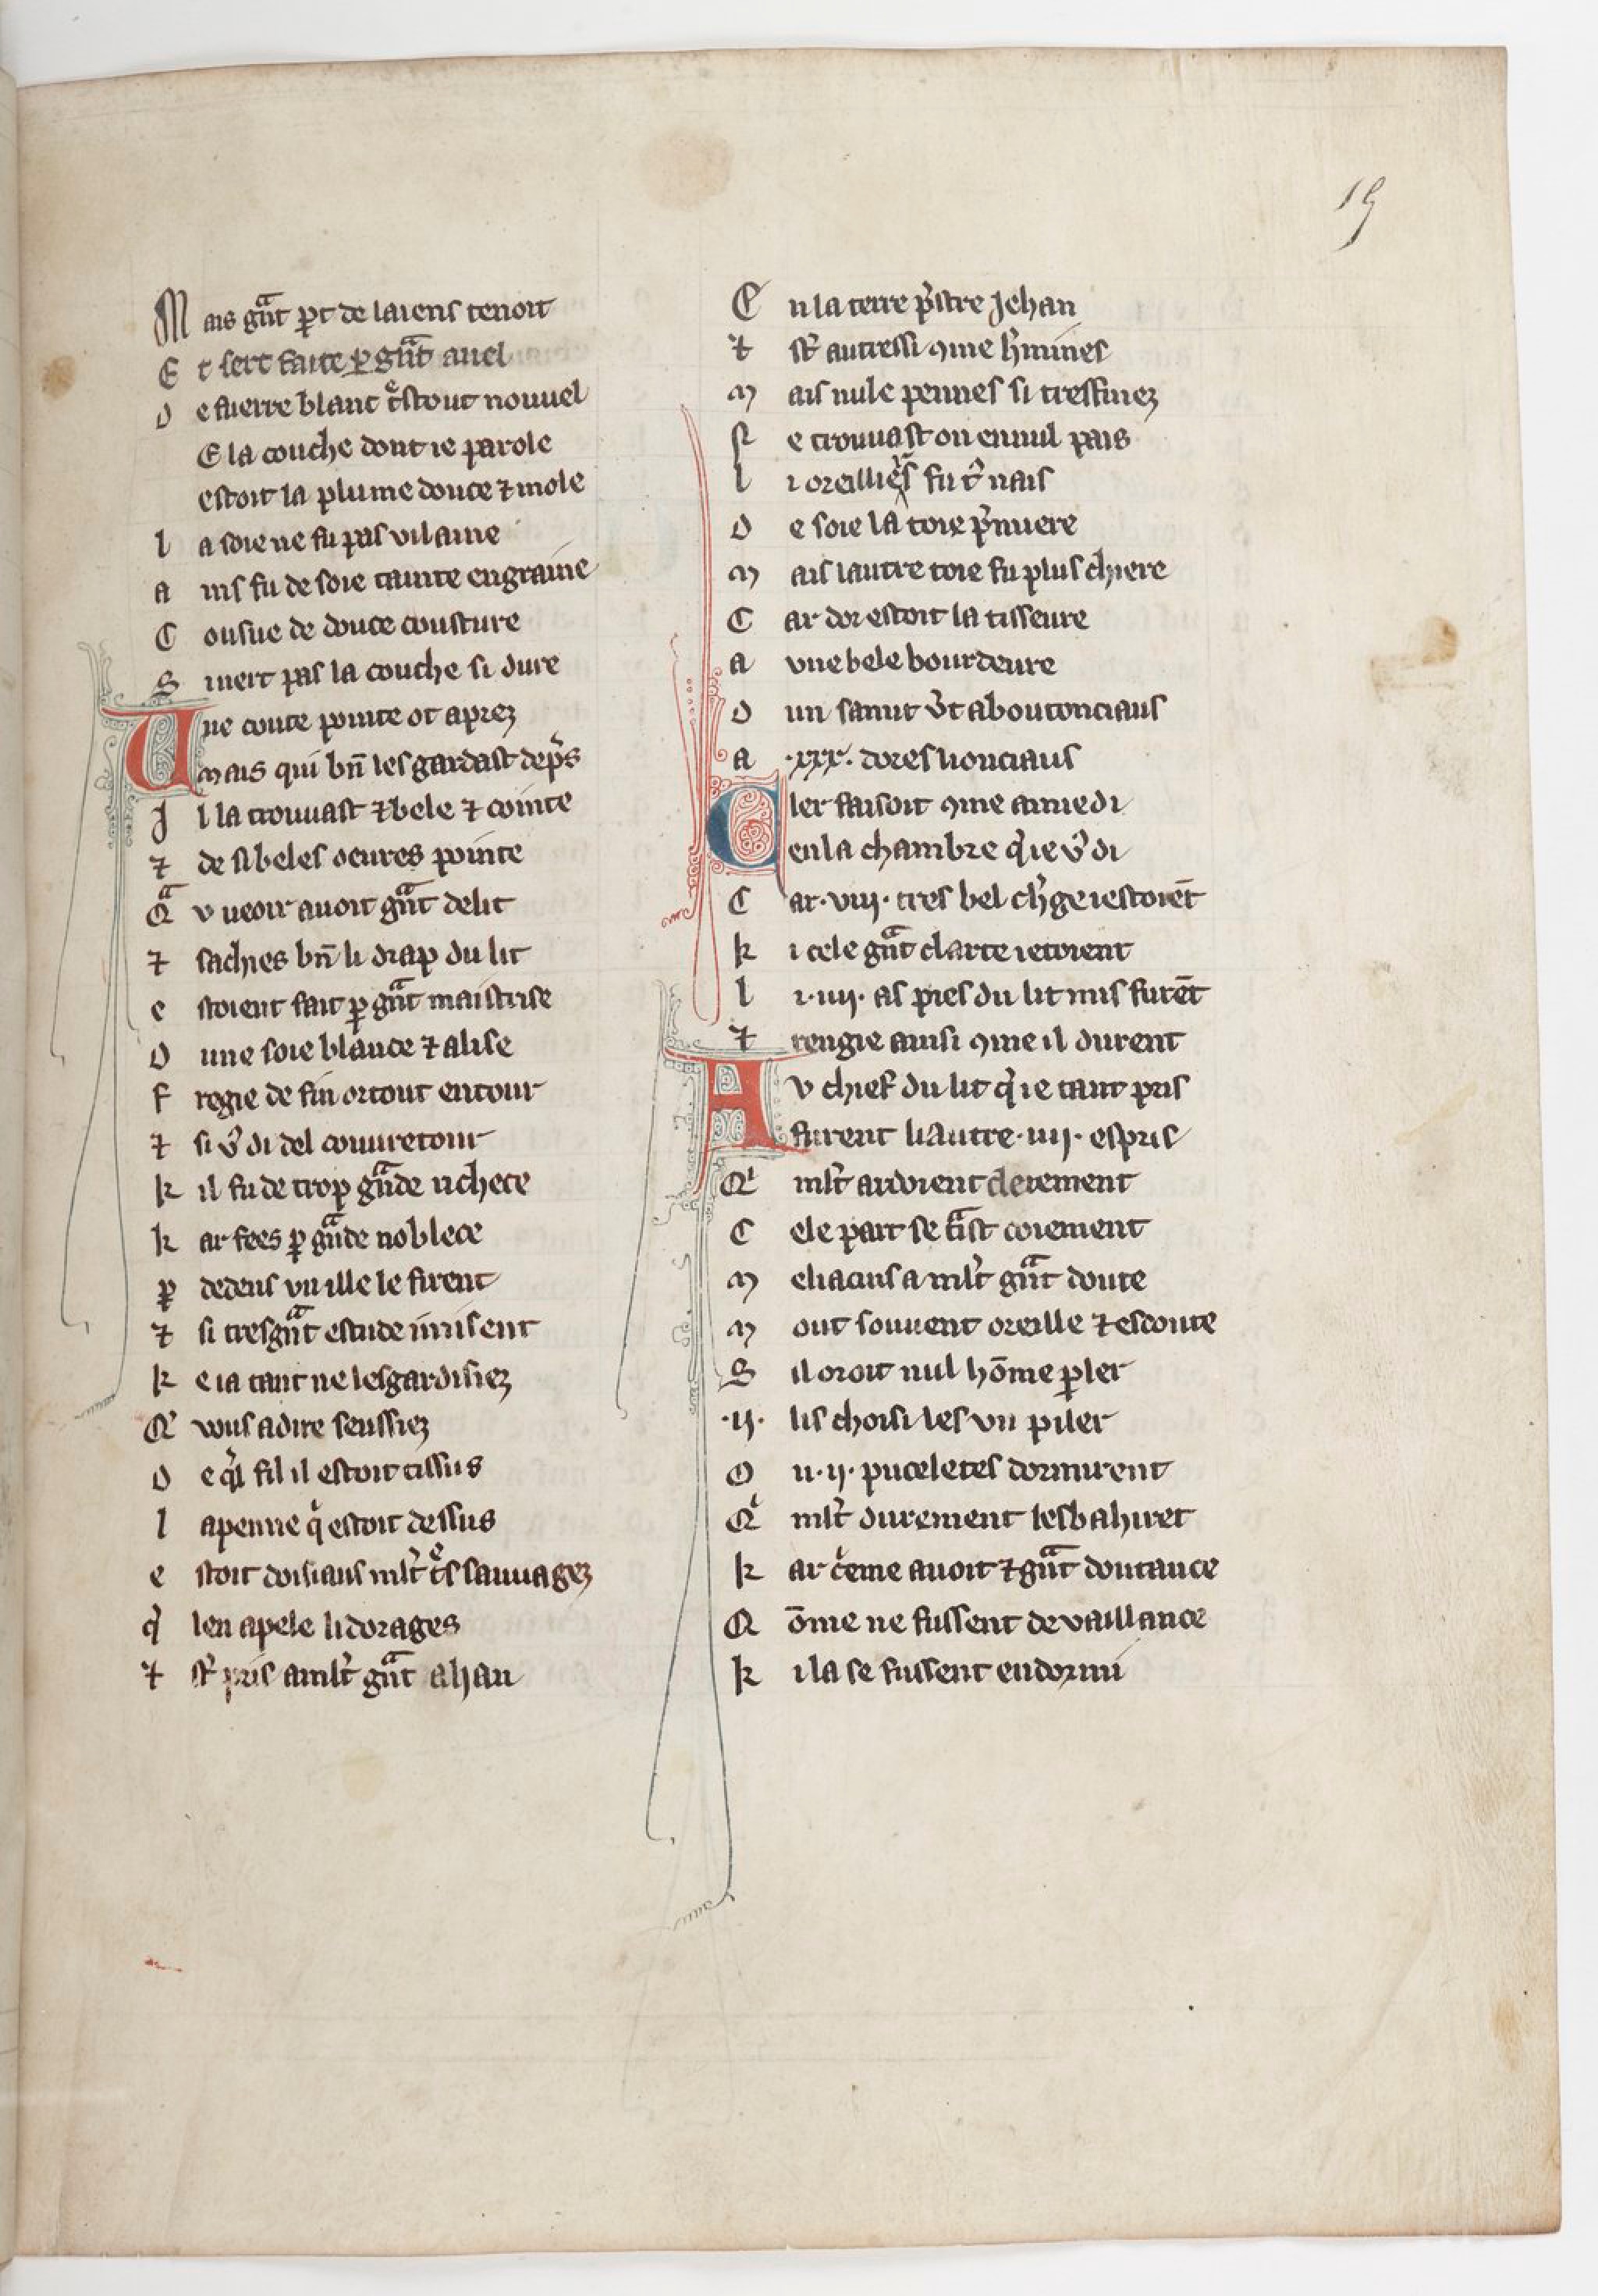 19
M ais gᷓnt ꝑt de laiens tenoit
E t sert faite ꝑ gᷓnt auel
D e fuerre blanc tͤstout nouuel
E la couche dont ie parole
estoit la plume douce ⁊ mole
l a soie ne fu pas vilaine
a ins fu de soie tainte engraine
C ousue de douce cousture
S inert pas la couche si dure
Une coute pointe ot aprez
mais qui bn̄ lesgardast dep̾s
J l la trouuast ⁊ bele ⁊ cointe
⁊ de si beles oeures pointe
Qᷓ v ueoir auoit gᷓnt delit
⁊ sachies bn̄ li drap du lit
e stoient fait ꝑ gᷓnt maistrise
D une soie blance ⁊ alise
F regie de fin or tout entour
⁊ si v̾ di del couuretour
k il fu de trop gᷓnde richece
k ar fees ꝑ gᷓnde noblece
ꝑ dedens vn ille le firent
⁊ si tresgᷓnt estude imisent
k e ia tant ne lesgardisiez
Qͥ vous adire seussiez
D e qͥl fil il estoit tissus
l apenne qͥ estoit dessus
e stoit doisiaus ml̾t tͤs sauuagez
qͥ len apele lidorages
⁊ st̾ pris a ml̾t gᷓnt ahan
E n la terre p̾stre Jehan
⁊ st̾ autressi ꝯme h̾mines
M ais nule pennes si tresfinez
N e trouuast on ennul pais
l i oreilliers fu t̾nais
D e soie la toie p̾miere
M ais lautre toie fu plus chiere
C ar dor estoit la tisseure
a vne bele bourdeure
D un samit v̾t a boutonciaus
a .xxx. dores lionciaus
Cler faisoit ꝯme amiedi
en la chambre qͥ ie v̾ di
C ar .viij. tres bel ch̾ge iestoiēt
k i cele gᷓnt clarte ietoient
l i .iiij. as pies du lit mis furēt
⁊ rengie ainsi ꝯme il durent
Av chief du lit qͥ ie tant pris
furent li autre .iiij. espris
Qͥ ml̾t ardoient clerement
C ele part se tᷓist coiement
M eliacins a ml̾t gᷓnt doute
M out souuent oreille ⁊ escoute
S il oroit nul hōme ꝑler
.ij. lis choisi les vn piler
O u .ij. puceletes dormirent
Qͥ ml̾t durement lesbahirēt
k ar cͥeme auoit ⁊ gᷓnt doutance
Q ōme ne fussent de vaillance
k i la se fussent endormi